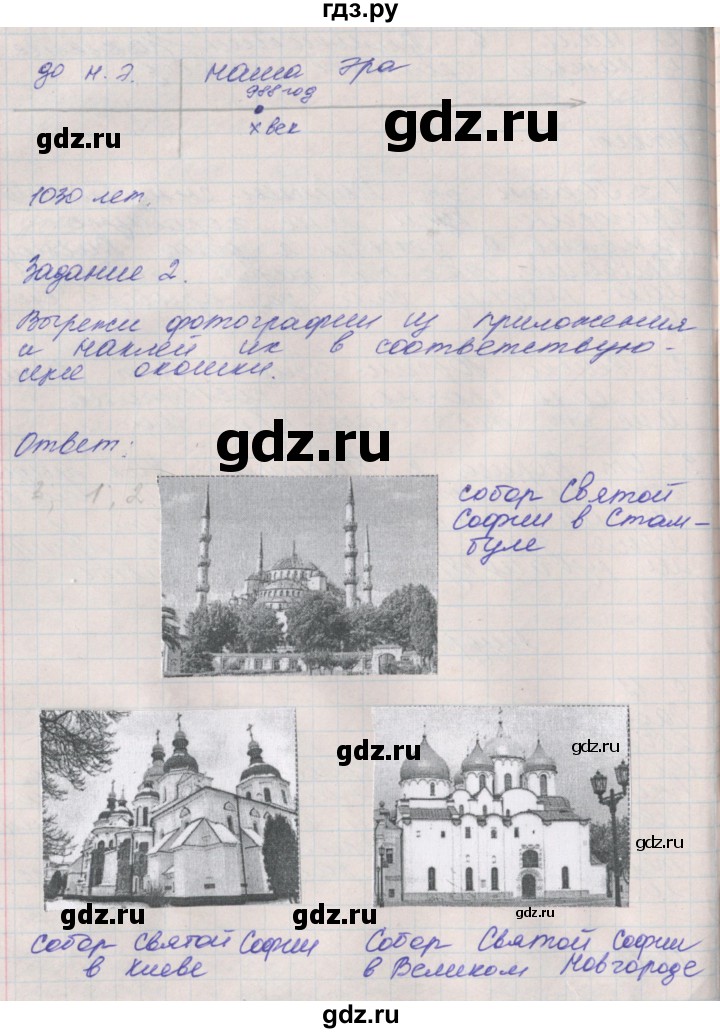 гдз.ру
до н.э. наша эра
988 год
X век
gdz.ru
gdz.ru
1030 лет.
Задание 2.
Вырежи фотографии из приложения
и наклей их в соответствую-
щие окошки.
Ответ:
gdz.ru
3, 1, 2
собор Святой
Софии в Стам-
буле
gdz.ru
gdz.ru
gdz.ru
gdz.ru
gdz.ru
gdz.ru
собор Святой Софии
в Киеве
Собор Святой Софии
в Великом Новгороде
gdz.ru